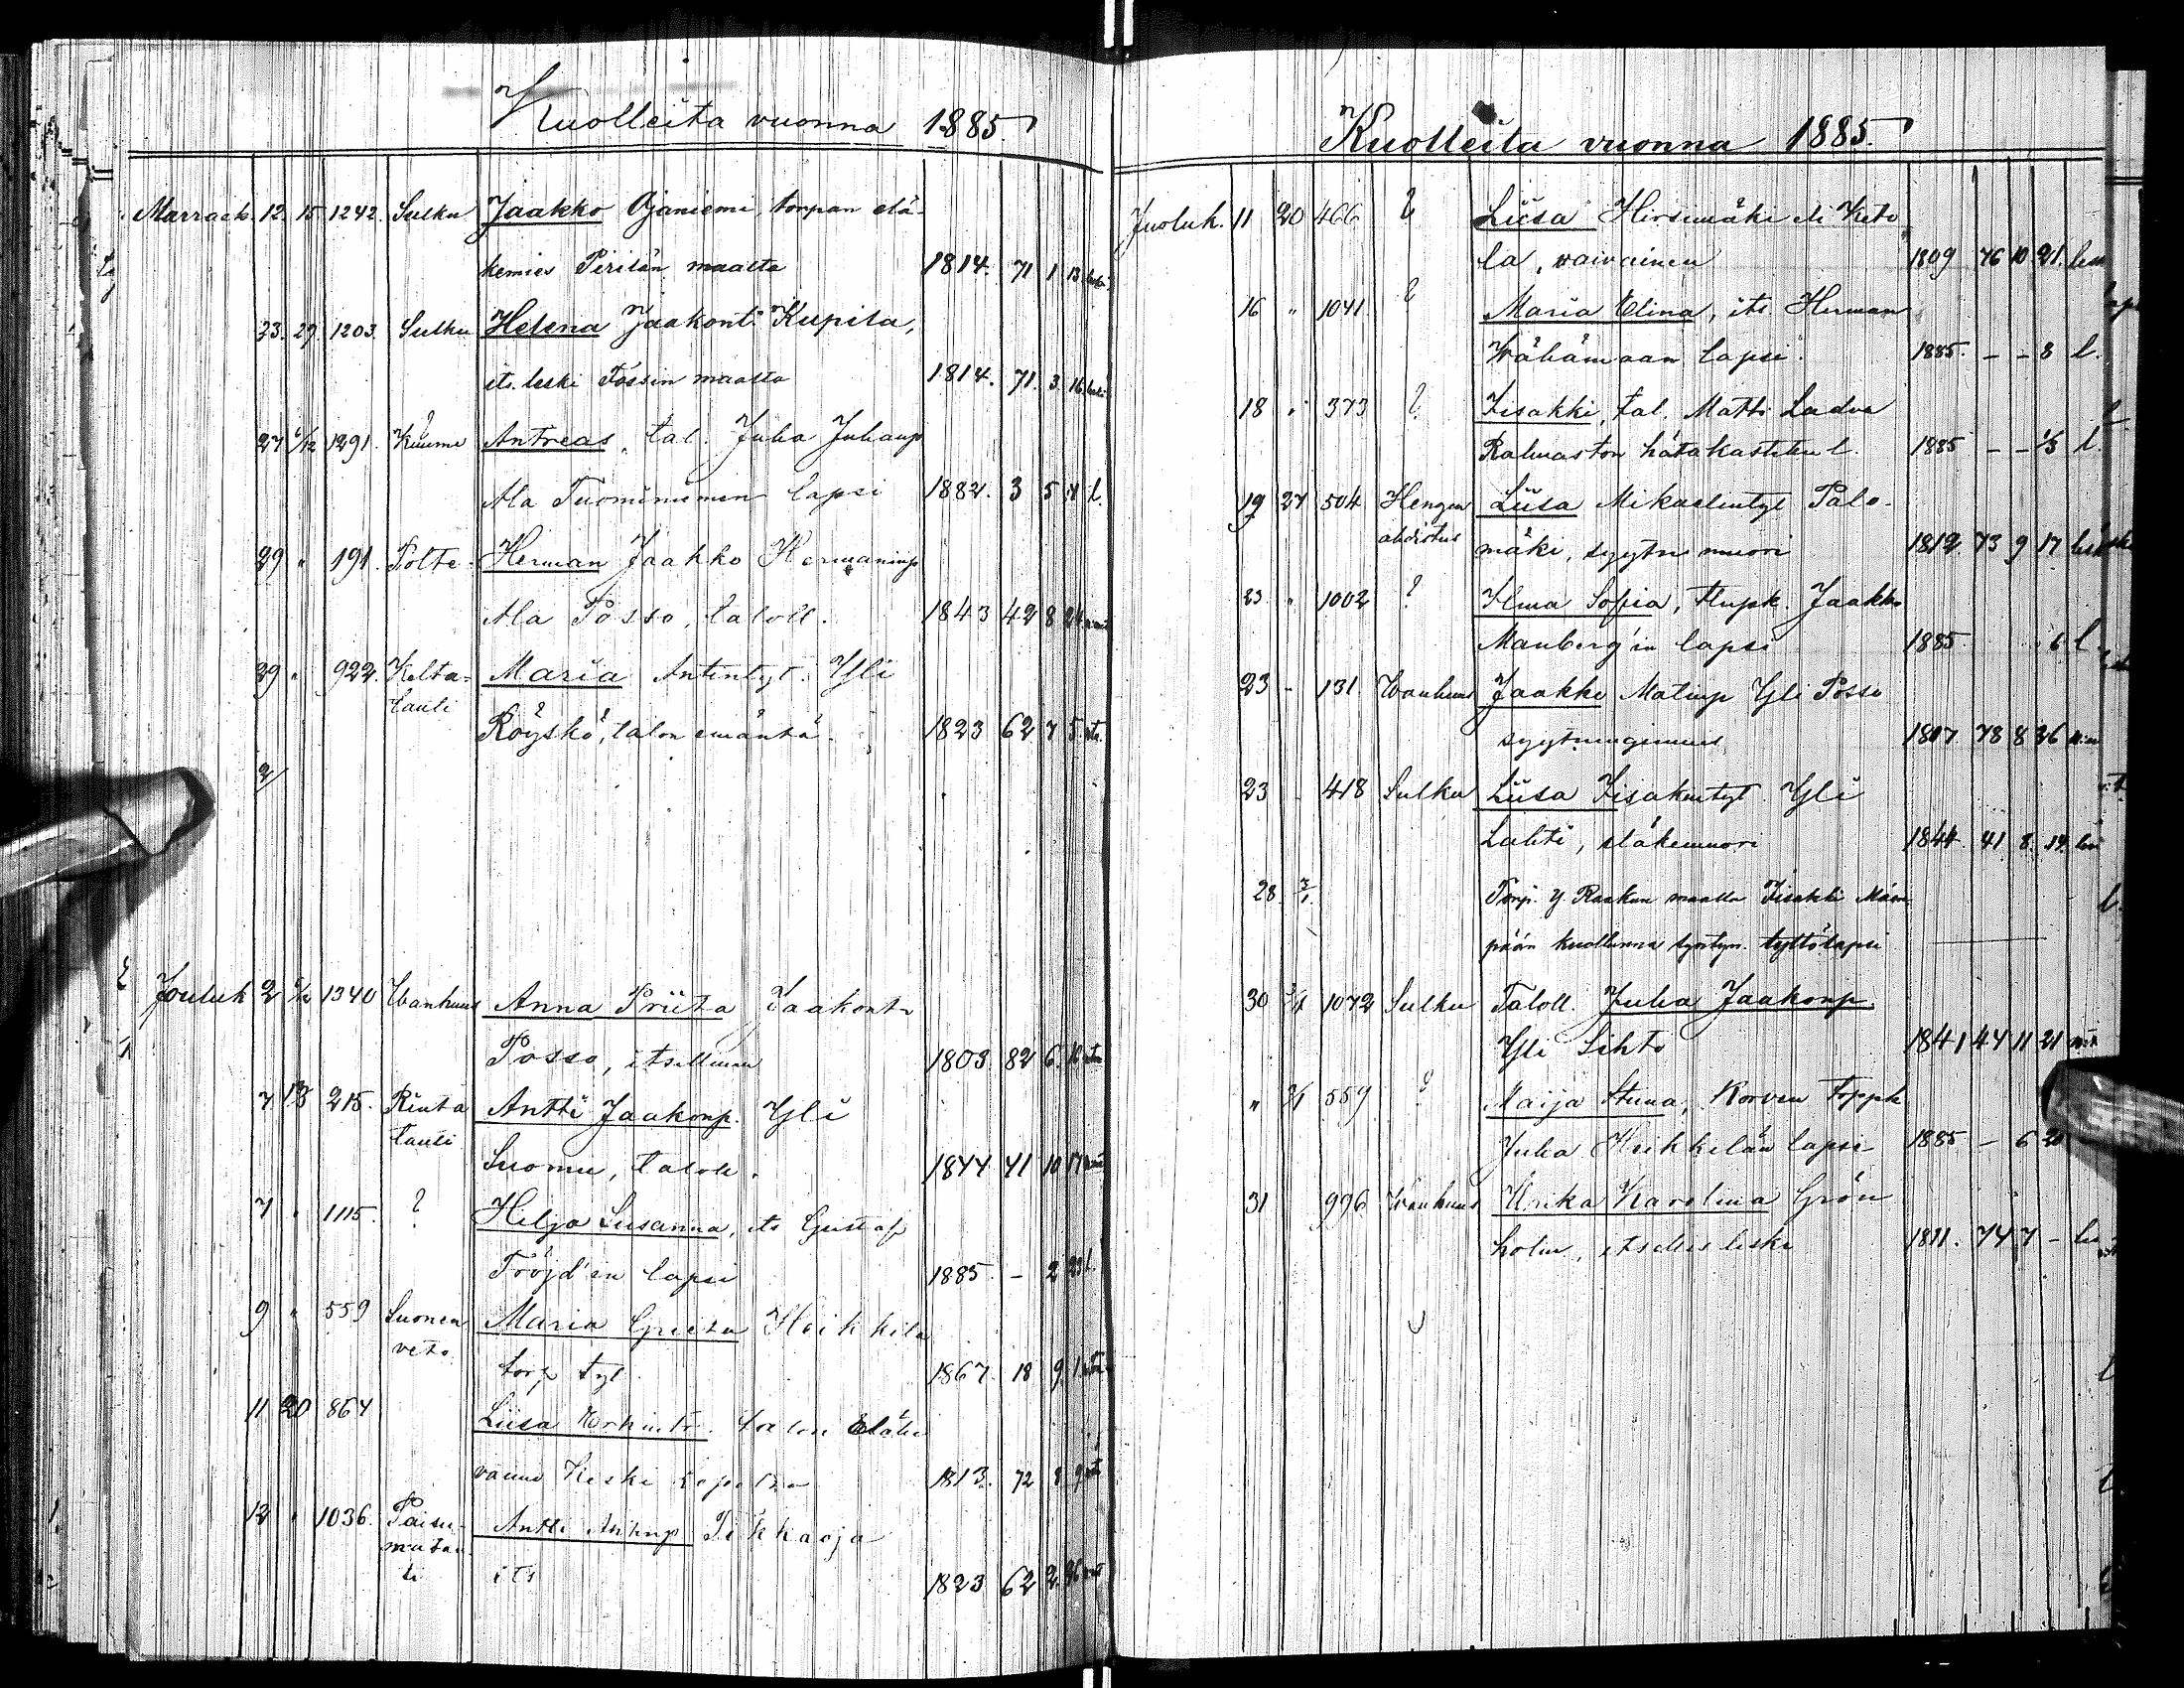 Kuolleita vuonna 1885.
Marrask. 12. 15. 1242. Sulku Jaakko Ojaniemi, torpan elä-
kemies Pirilän maalta 1814. 71 1 13 leski
23. 29. 1203. Sulku Helena Jaakont. Kupila,
its. leski Tössin maalta 1814. 71. 3. 16. leski
27 6/12 1291. Kuume Antreas, tal. Juha Juhanp
Ala Tuominiemen lapsi 1882. 3 5 4 l.
29 " 191. Polte- Herman Jaakko Hermaninp
Ala Posso, taloll. 1843 42 8 24
29 " 922. Kelta- Maria Antintyt. Yli
tauti
Röyskö, talon emäntä. 1823 62 7 5
2/
Jouluk 2 6/12 1340 Wanhuus Anna Priita Jaakont
Posso, itsellinen 1803. 82 6.
7 13 215. Rinta Antti Jaakonp. Yli
tauti
Suomu, taloll. 1844 41 10 17
7 " 1115. ? Hilja Susanna, its Gustaf
Tröjd'en lapsi 1885. - 2 23 l.
9 " 559 Suonen Maria Greeta Heikkilä
veto
torp tyt 1867. 18 9. 1
11 20 864 Liisa talon Eläke
vaimo Keski 1813. 72 8 9
12 " 1036. Paisu- Antti Antinp Pitkäoja
matau
ti its 1823 62 2. 26
Kuolleita vuonna 1885.
Jouluk. 11 20 466 ? Liisa Hirsimäki eli Keto
la, waivainen 1809 76 10 21. les
16 " 1041 ? Maria Elina, its. Herman
Wähämaan lapsi. 1885. - - 8 l.
18 " 373 ? Iisakki, tal. Matti Ladva
Rahnaston hätäkastettu l. 1885 - - 1/3 l.
19 27 504 Hengen Liisa Mikaelintyt Palo-
ahdistus
mäki, syytnimuori 1812. 73 9 17 leski
23. " 1002 ? Ilma Sofia, Tlupk. Jaakko
Manberg'in lapsi 1885. 6 l
23 - 131. Wanhuus Jaakko Matinp Yli Posso
syytningimies 1807. 78 8 26
23 - 418 Sulku Liisa Iisakintyt. Yli
Lahti, eläkemuori 1844. 41 8. 14. les
28. 3/1. Torp. Y. Raskun maalla Iisakki Män
pään kuolleena syntyn. tyttölapsi
30 3/1 1072 Sulku Taloll. Juha Jaakonp.
Yli Sihto 1841 44 11 21
" 3/1 559 ? Maija Stina, Korven Torppk
Juha Heikkilän lapsi 1885 - 6 20
31 996 Wanhuus Ulrika Karolina Grön
holm, itsellis leski 1811. 74 7 - les